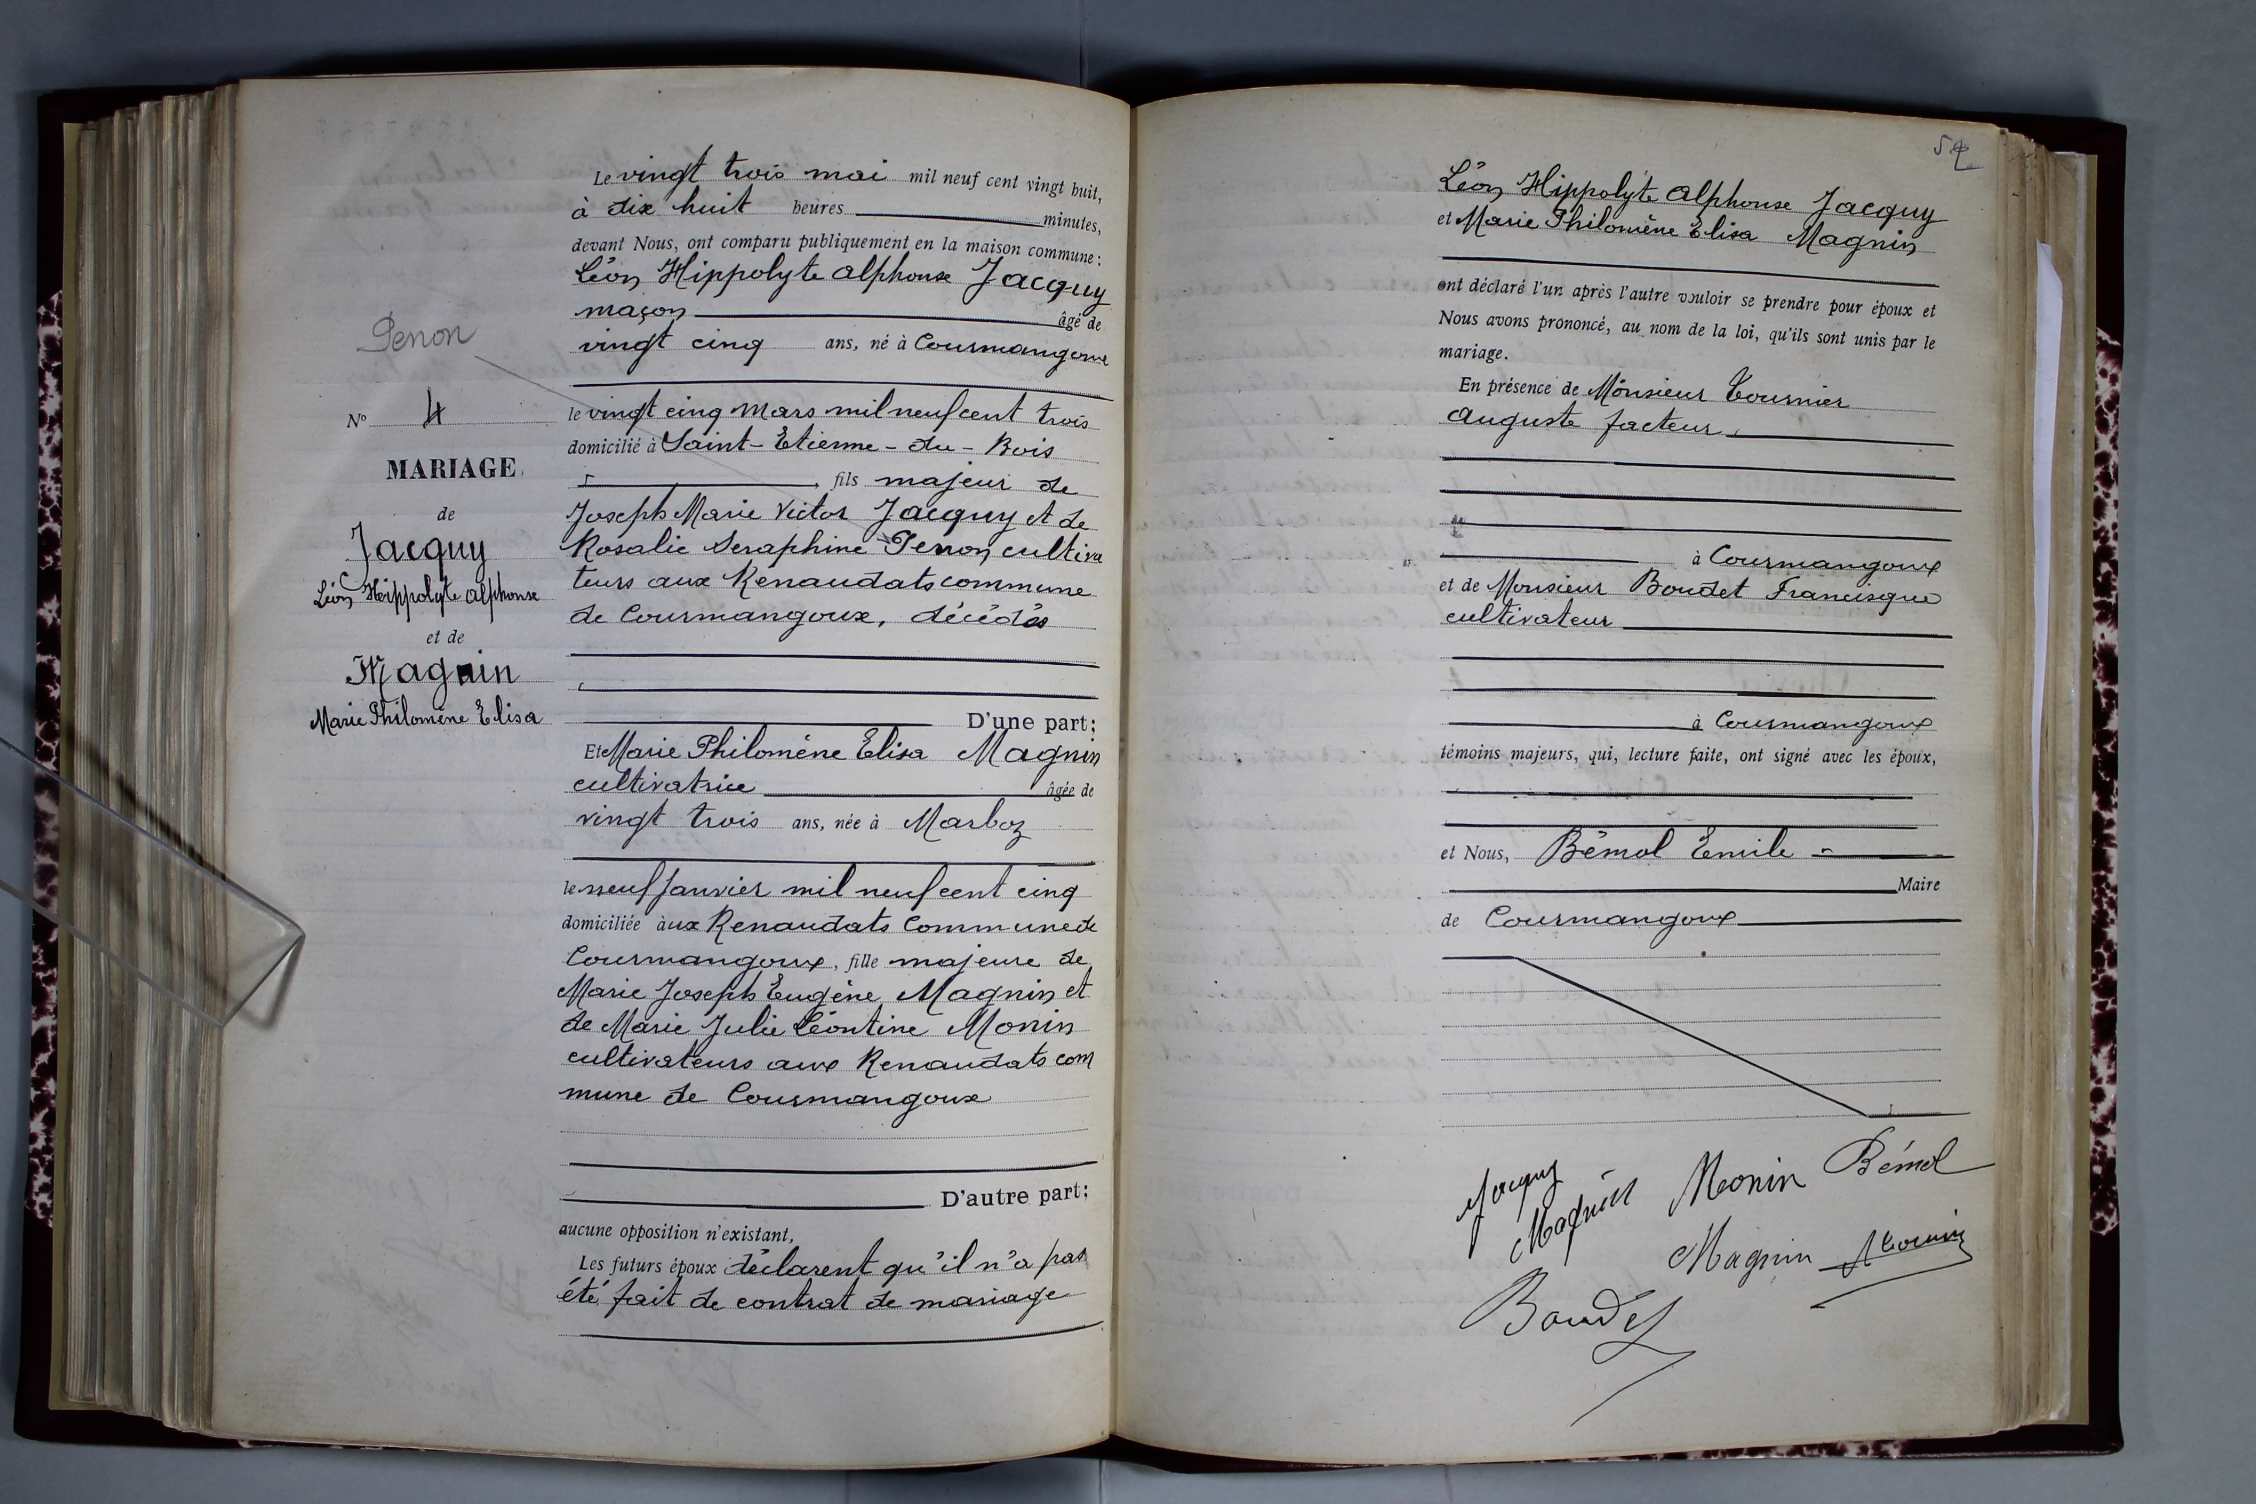 Penon
Nº 4
MARIAGE
de
Jacquy
Léon Hippolyte Alphonse
et de
Magnin
Marie Philomène Elisa
Le vingt trois mai mil neuf cent vingt huit,
à dix huit heures minutes,
devant Nous, ont comparu publiquement en la maison commune :
Léon Hippolyte Alphonse Jacquy
maçon âgé de
vingt cinq ans, né à Courmangoux
le vingt cinq Mars mil neuf cent trois
domicilié à Saint-Etienne-du-Bois
fils majeur de
Joseph Marie Victor Jacquy et de
Rosalie Seraphine Penon, cultiva
teurs aux Renaudats commune
de Courmangoux, décédés
D'une part;
Et Marie Philomène Elisa Magnin
cultivatrice âgée de
vingt trois ans, née à Marboz
le neuf Janvier mil neuf cent cinq
domiciliée àux Renaudats Commune de
Courmangoux, fille majeure de
Marie Joseph Eugène Magnin et
de Marie Julie Léontine Monin
cultivateurs aux Renaudats com
mune de Courmangoux
D'autre part;
aucune opposition n'existant,
Les futurs époux déclarent qu'il n'a pas
été fait de contrat de mariage
Léon Hippolyte Alphonse Jacquy
et Marie Philomène Elisa Magnin
ont déclaré l'un après l'autre vouloir se prendre pour époux et
Nous avons prononcé, au nom de la loi, qu'ils sont unis par le
mariage.
En présence de Monsieur Tournier
Auguste facteur
à Courmangoux
et de Monsieur Boudet Francisque
cultivateur
à Courmangoux
témoins majeurs, qui, lecture faite, ont signé avec les époux,
et Nous, Bémol Emile
Maire
de Courmangoux
Jacquy
Magnin
Monin
Bémol
Magnin
Boudet